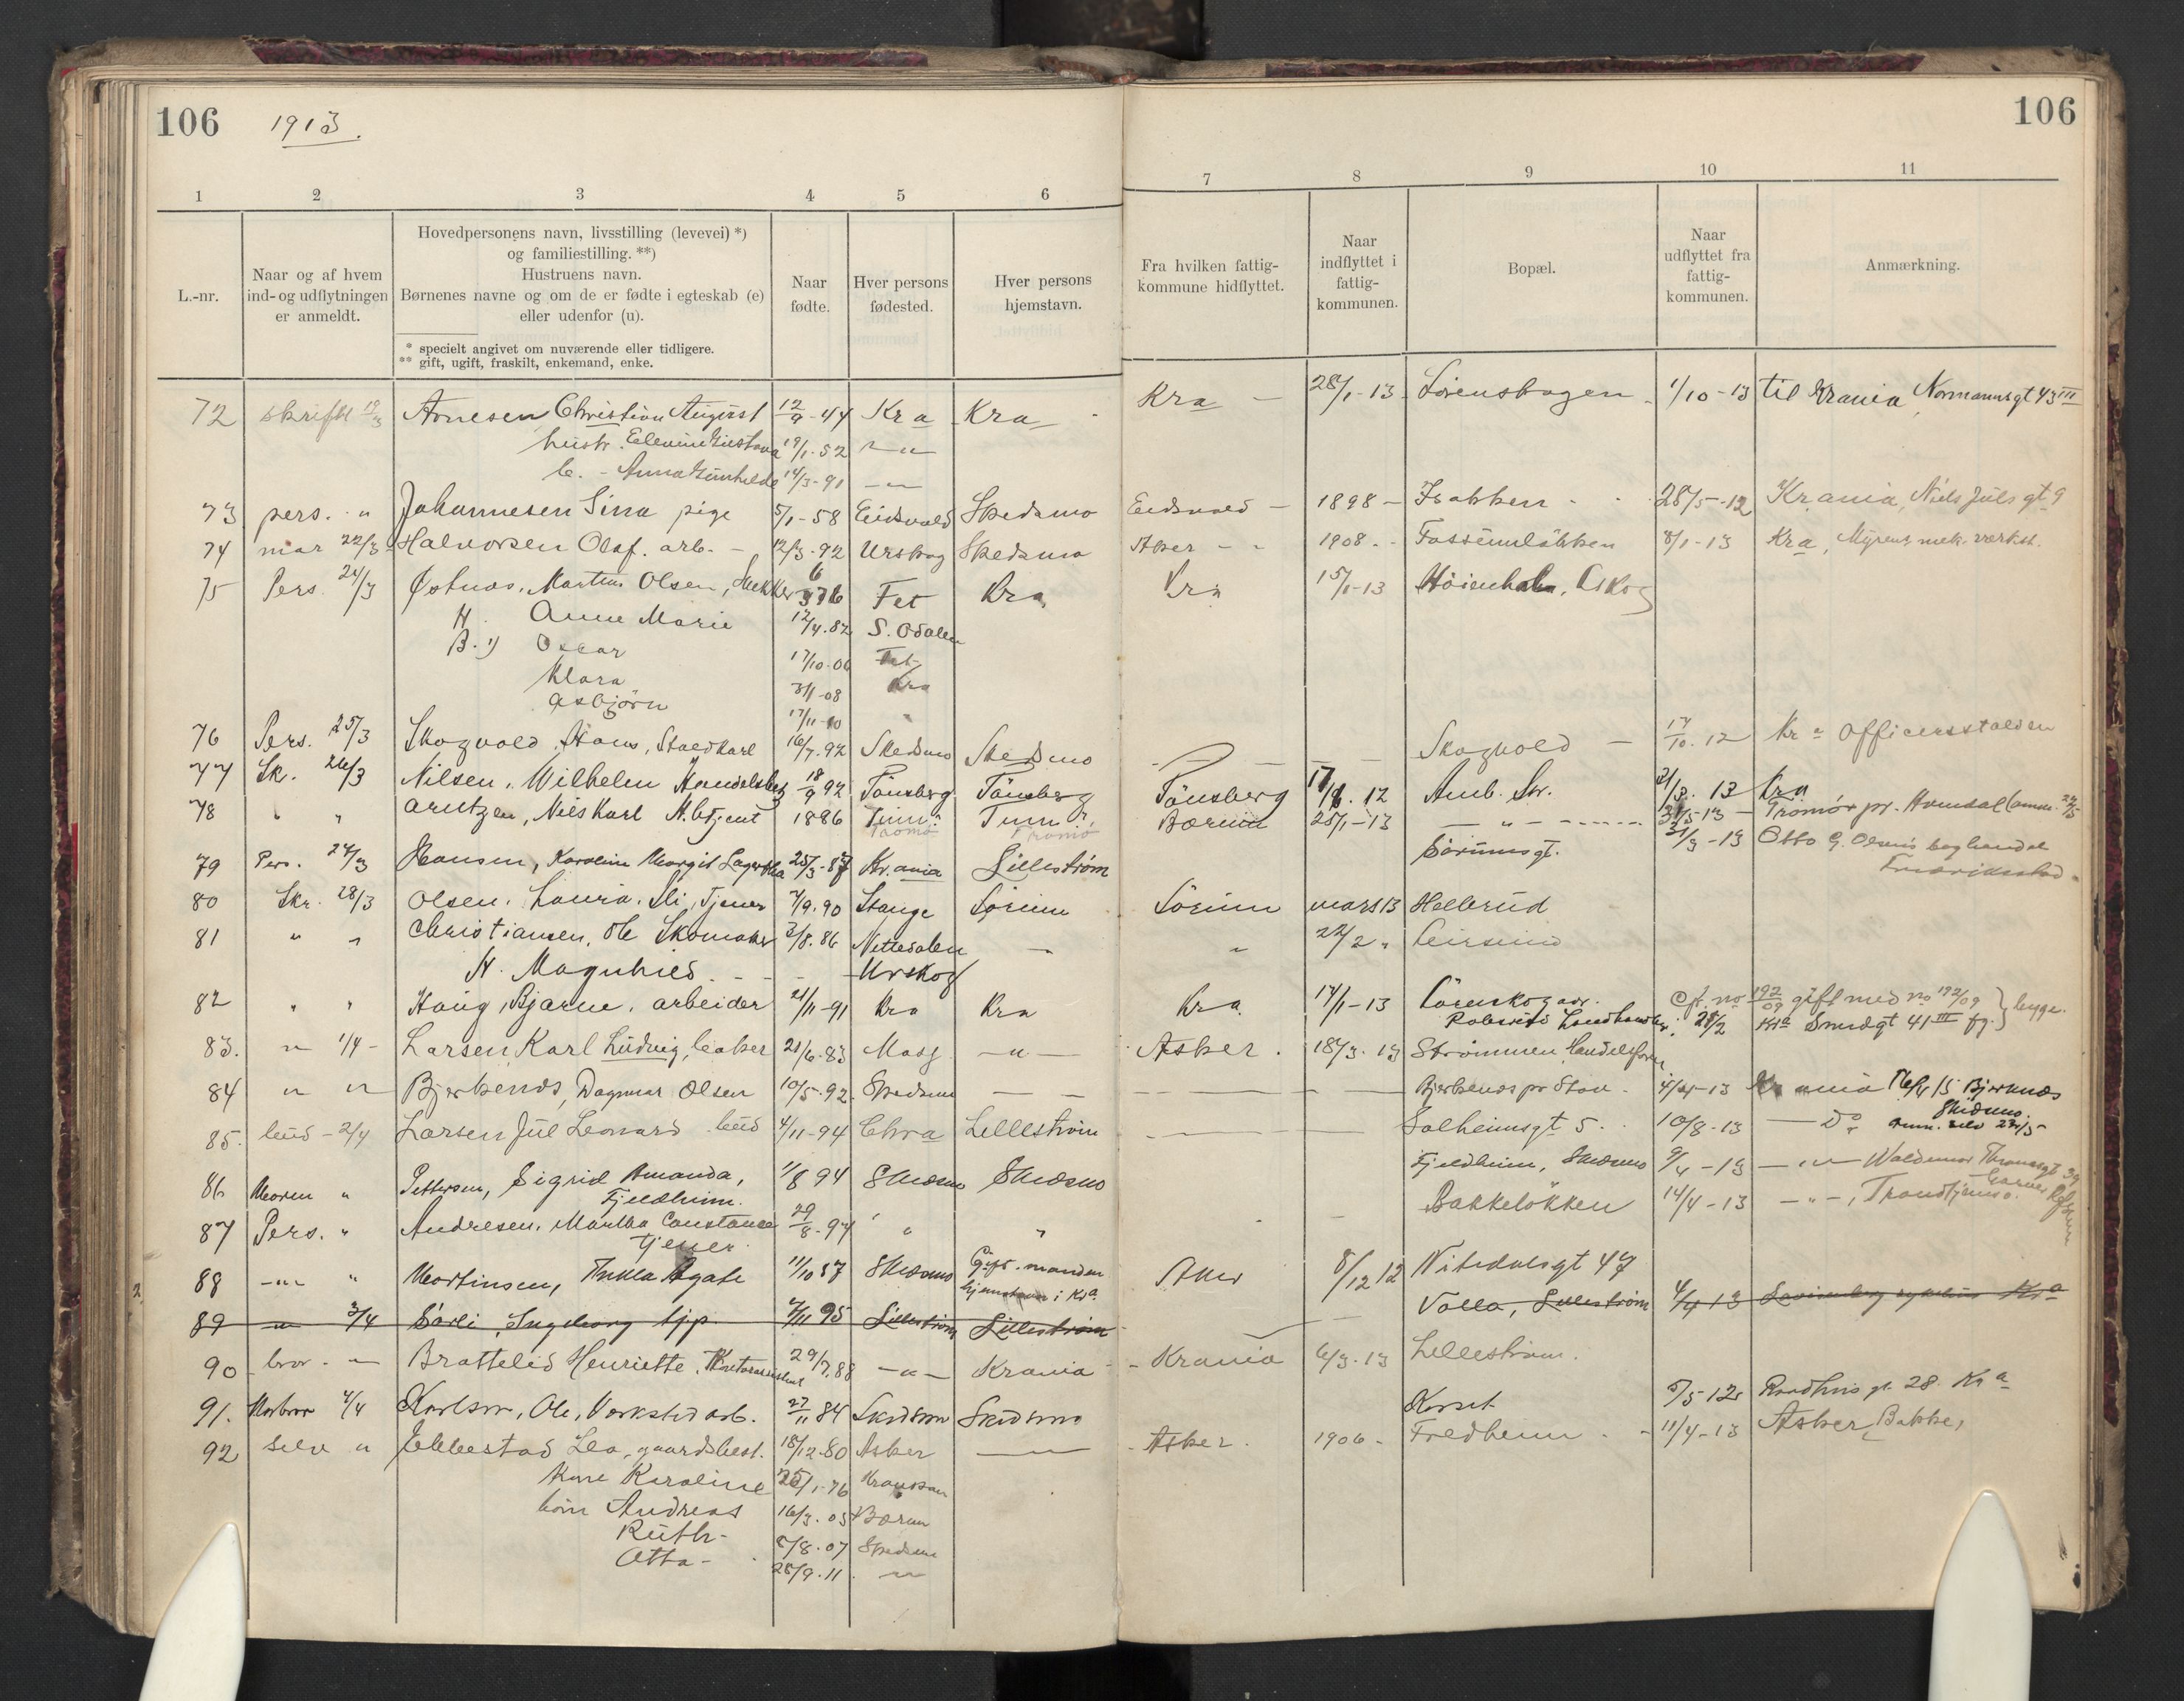 106 1913. 106
1 2 3 4 5 6 7 8 9 10 11
L.-nr.
Naar og af hvem
ind- og udflytningen
er anmeldt.
Hovedpersonens navn, livsstilling (levevei) *)
og familiestilling. **)
Hustruens navn.
Børnenes navne og om de er fødte i egteskab (e)
eller udenfor (u).
* specielt angivet om nuværende eller tidligere.
** gift, ugift, fraskilt, enkemand, enke.
Naar
fødte.
Hver persons
fødested.
Hver persons
hjemstavn.
Fra hvilken fattig-
kommune hidflyttet.
Naar
indflyttet i
fattig-
kommunen.
Bopæl.
Naar
udflyttet fra
fattig-
kommunen.
Anmærkning.
72 skriftl Arnesen Christian August 12/9-44 Kra Kra Kra 28/1-13 Lørenskogen 1/10-13 til Krania Normannsgt 43 III
hustr. Elevine Gustava 19/1-52 - " -
b. - Anna Gunhilde 14/3-91 - " -
73 pers. " Johannesen Sina pige 5/1-58 Eidsvold Skedsmo Eidsvold 1898 Isakken 28/5-12 Krania, Niels Juls gt 9
74 mar 22/3 Halvorsen Olaf. arb. 12/3-92 Urskog Skedsmo Asker 1908 Fossumløkken 8/1-13 Kra, Myrens mek. verkst.
75 Pers. 24/3 Østnas, Martin Olsen, Fet Kra Kra 15/1-13 Høienhalm,
H. Anne Marie 12/4.82 S. Odalen
B. 1) Oscar 17/10-06 Fet
Klara 3/1-08 Kra
Asbjørn 17/11-10 "
76 Pers. 25/3 Skogvold, Hans, Staldkarl 16/7.92 Skedsmo Skedsmo Skogvold 17/10.12 Kra Officersstalden
77 Sk. 26/3 Nilsen, Wilhelm Handelsbetj 18/9 92 Tönsberg Tönsberg Tönsberg 12 Amb. Sv. 13 Kra
78 " " Arntzen, Niels Karl H.betjent 1886 Tromø Tromø Bærum 25/1-13 - " - 31/5-13 Tromø pr. Arendal
79 Pers. 27/3 Hansen, Karoline Margit Lagertha 25/3-87 Kr.ania Lillestrøm Sörumsgt. 31/3-13 Otto G. Olsens boghandel
Fredriksstad
80 Skr. 28/3 Olsen, Laura, Sli, Tjener 7/9.90 Stange Sörum Sörum mars 13 Hellerud
81 " " Christiansen, Ole Skomaker 3/8.86 Nittedalen - " 22/2 " Leirsund
H. Magnhild - - - Urskog
82 " " Haug, Bjarne, arbeider 21/11-91 Kra Kra Kra 14/1-13 Lörenskog adr. Cf. no 192/09 gift med no 192/09 } begge.
Landhandler. 28/2 Kra Smedgt 41 III
83. " 1/4 - Larsen Karl Ludvig, baker 21/6-83 Moss - " - Asker 18/3-13 Strømmen Handelsforen
84 " " Bjerkenæs, Dagmar Olsen 10/5-92 Skedsmo - - Bjerkenæs pr Ston 4/4-13 Krania 16/4 15 Bjerknæs
Skedsmo.
85. bud - 2/4 Larsen Jul Leonard bud 4/11-94 Chra Lillestrøm Solheimsgt 5. 10/8-13 - Do anm. selv 27/5
86 Moren " Pettersen, Sigrid Amanda, 1/8 94 Skedsmo Skedsmo Fjeldheim, Skedsmo 9/4-13 - " - Waldemar Thranesgt 39
Fjeldheim.
87 Pers. " Andresen, Martha Constance 29/8-94 " " Bakkeløkken 14/4-13 - " -, Trondhjemso.
tjener
88 - " - " Martinsen, Thekla Agate 11/10 87 Skedsmo Gift. manden Aker 8/12 12 Nitedalsgt 47
hjemstavn i Kra.
89 - " - 3/4 Sørli, Ingeborg tjp. 7/11 95 Lillestrøm Lillestrøm Volla, Lillestrøm 4/4 13 Lovisenberg sykehus Kra
90 bror - " - Brattelid Henriette, Kontorassistent 29/7.88 - " - Krania Krania 6/3-13 Lillestrøm.
91. Morbror 4/4 Karlsen, Ole, Verksted arb. 27/11 84 Skedsmo Skedsmo Korset 5/5-12 Raadhusgt. 28. Kra
92 Selv " Jellestad Leo, gaardsbest. 18/12-80 Asker - " - Asker 1906 Fredheim 11/4-13 Asker, Bakke,
Kone Karoline 25/1-76
börn Andreas 16/3.05 Bærum
Ruth - 5/8-07 Skedsmo
Otto - 28/9.11 - " -